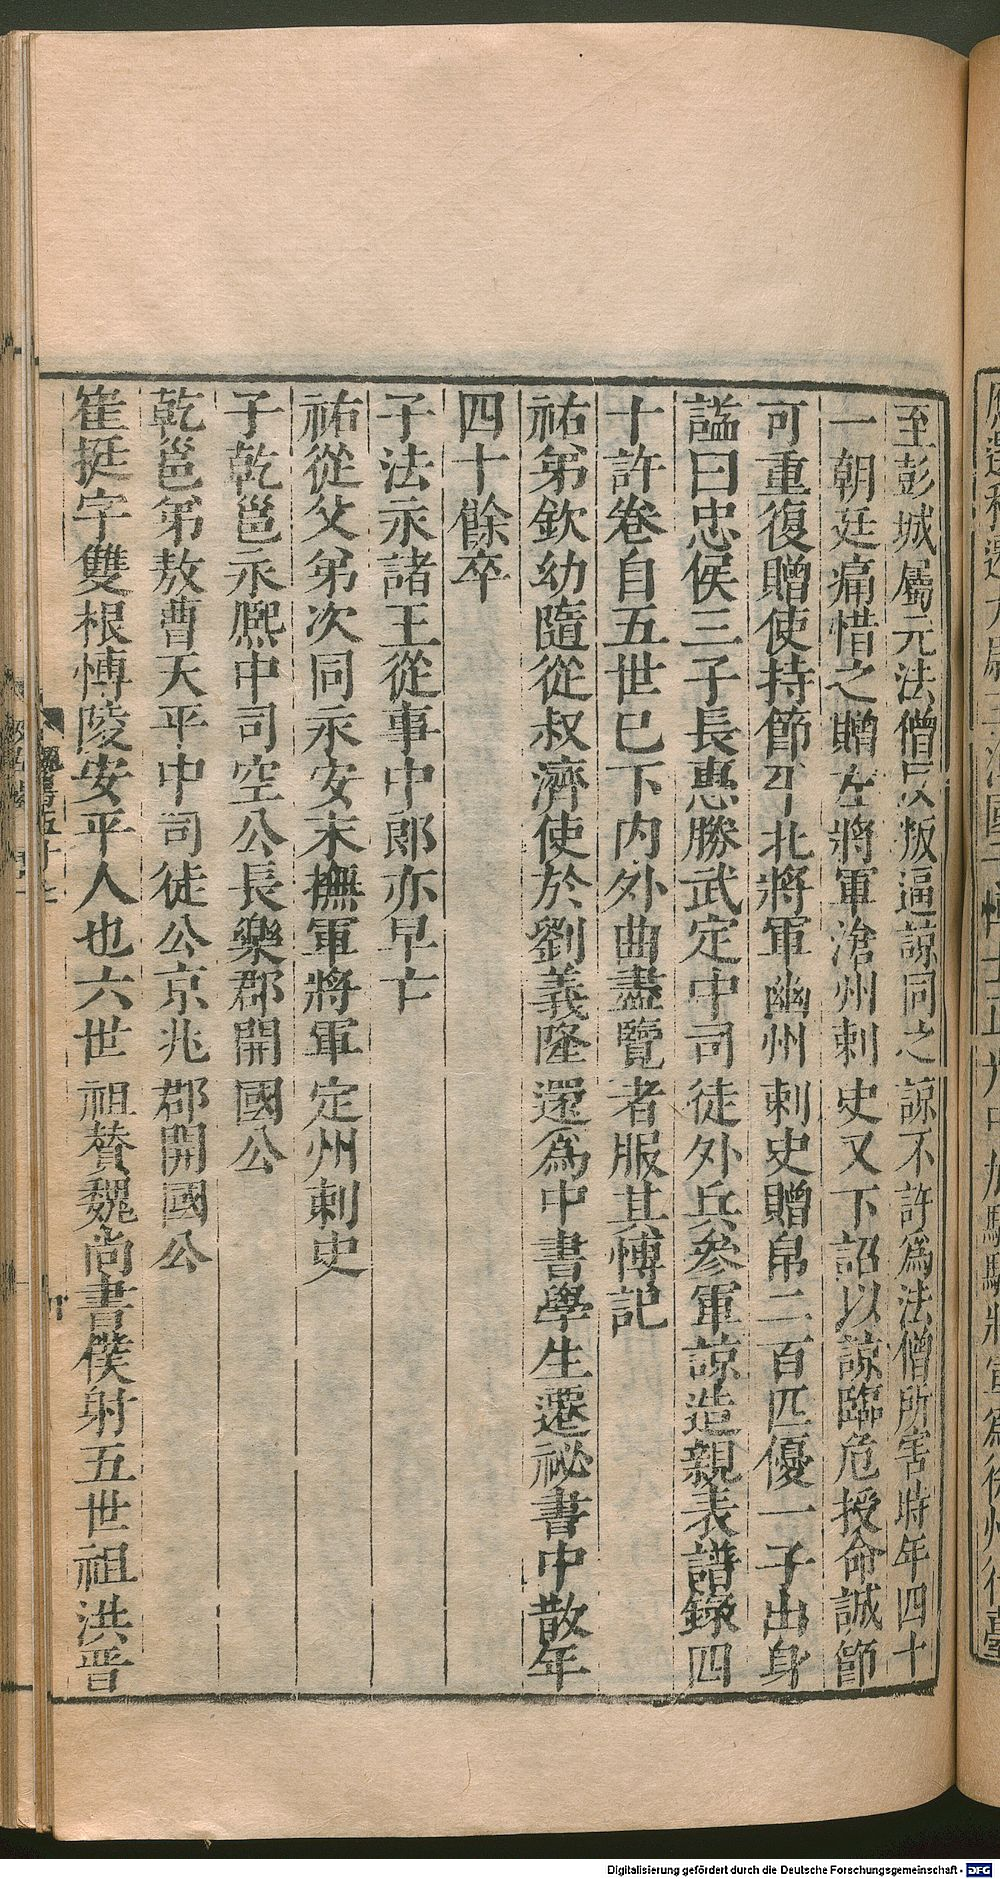 至彭城屬元法僧反叛逼諒同之諒不許爲法僧所害時年四十
一朝廷痛惜之贈左將軍滄州刺史又下詔以諒臨危授命誠節
可重復贈使持節平北將軍幽州刺史贈帛二百匹優一子出身
謚曰忠侯三子長惠勝武定中司徒外兵參軍諒造親表譜錄四
十許卷自五世已下内外曲盡覽者服其博記
祐弟欽幼隨從叔濟使於劉義隆還爲中書學生遷祕書中散年
四十餘卒
子法永諸王從事中郎亦早亡
祐從父弟次同永安末撫軍將軍定州刺史
子乾邕永熙中司空公長樂郡開國公
乾邕弟敖曹天平中司徒公京兆郡開國公
崔挺字雙根博陵安平人也六世祖贊魏尚書僕射五世祖洪晋
魏書五十七
Digitalisierung gefördert durch die Deutsche Forschungsgemeinschaft - DFG